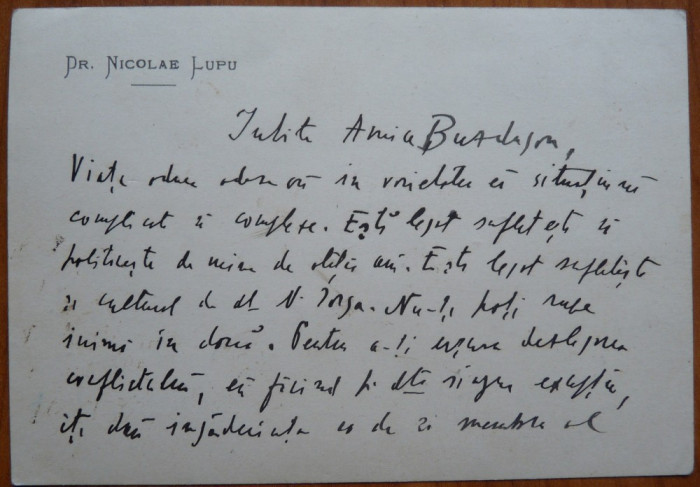 Dr. Nicolae Lupu
Iubite Amice Buzdugan,
Viața aduce adesea ori în societate și situațiuni
complicate și complexe. Ești legat sufletește și
politicește de mine de atâția ani. Ești legat sufletește
și cultural de dl N. Iorga. Nu-ți poți rupe
inima în două. Pentru a-ți ușura deslegarea
conflictului, eu făcând pt dta singura excepție,
îți dau